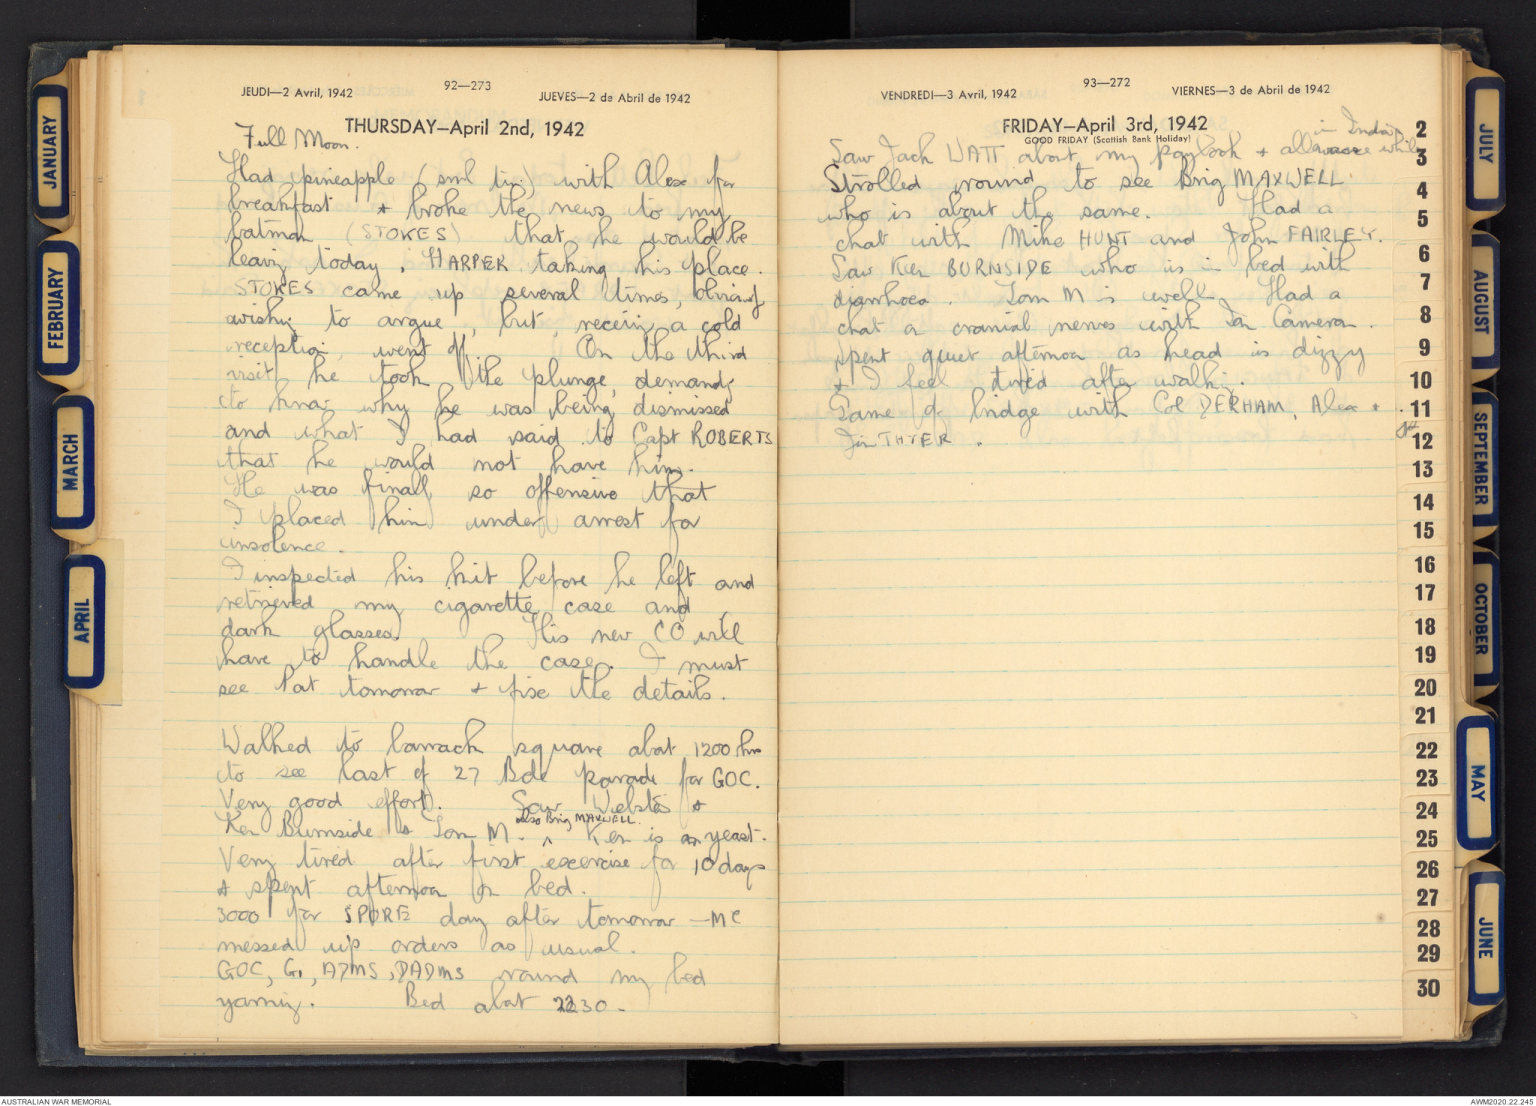 JEUDI—2 Avril, 1942
92—273
JUEVES—2 de Abril de 1942
THURSDAY—April 2nd, 1942
Full Moon.
Had pineapple (sml tin) with Alex for
breakfast + broke the news to my
batman (STOKES) that he would be
leaving today, HARPER taking his place.
STOKES came up several times, obviously
wishing to argue, but, receiving a cold
reception, went off. On the third
visit he took the plunge, demanding
to know why he was being dismissed
and what I had said to Capt ROBERTS
that he would not have him.
He was finally so offensive that
I placed him under arrest for
insolence.
I inspected his kit before he left and
retrieved my cigarette case and
dark glasses. His new CO will
have to handle the case. I must
see Pat tomorrow + fix the details.
Walked to barrack square about 1200 hrs
to see last of 27 Bde parade for GOC.
Very good effort. Saw Webster +
Ken Burnside & Tom M. ^ also Brig MAXWELL. Ken is on yeast.
Very tired after first exercise for 10 days
+ spent afternoon on bed.
3000 for SPORE day after tomorrow — Mc
messed up orders as usual.
GOC, G1, ADMS, DADMS round my bed
yarning. Bed about 2230.
VENDREDI—3 Avril, 1942
93—272
VIERNES—3 de Abril de 1942
FRIDAY—April 3rd, 1942
GOOD FRIDAY (Scottish Bank Holiday)
Saw Jack WATT about my paybook + allowance while in India
Strolled round to see Brig MAXWELL
who is about the same. Had a
chat with Mike HUNT and John FAIRLEY.
Saw Ken BURNSIDE who is in bed with
diarrhoea. Tom M is well. Had a
chat on cranial nerves with Ian Cameron.
Spent quiet afternoon as head is dizzy
+ I feel tired after walking.
Game of bridge with Col DERHAM, Alex +
Jim THYER.
JANUARY
FEBRUARY
MARCH
APRIL
JULY
AUGUST
SEPTEMBER
OCTOBER
MAY
JUNE
2
3
4
5
6
7
8
9
10
11
12
13
14
15
16
17
18
19
20
21
22
23
24
25
26
27
28
29
30
AUSTRALIAN WAR MEMORIAL
AWM2020.22.245